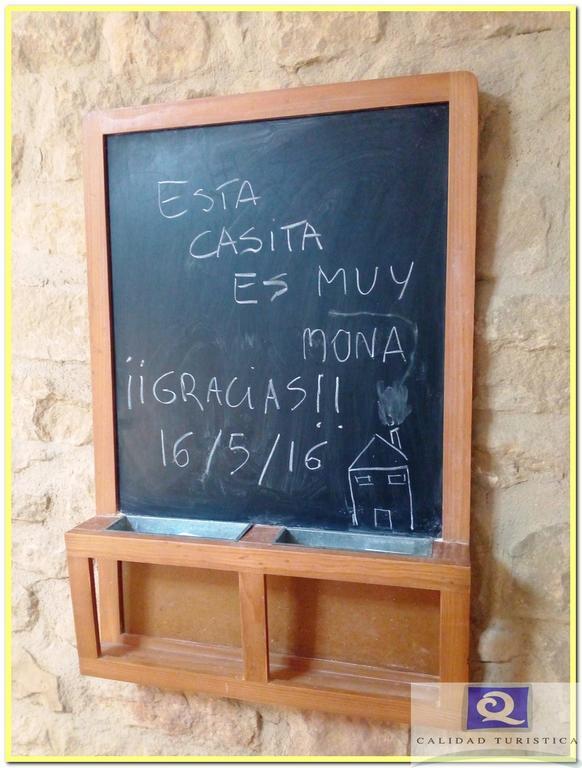 ESTA
CASITA
ES MUY
MONA
¡¡GRACIAS!!
16/5/16
Q
CALIDAD TURISTICA